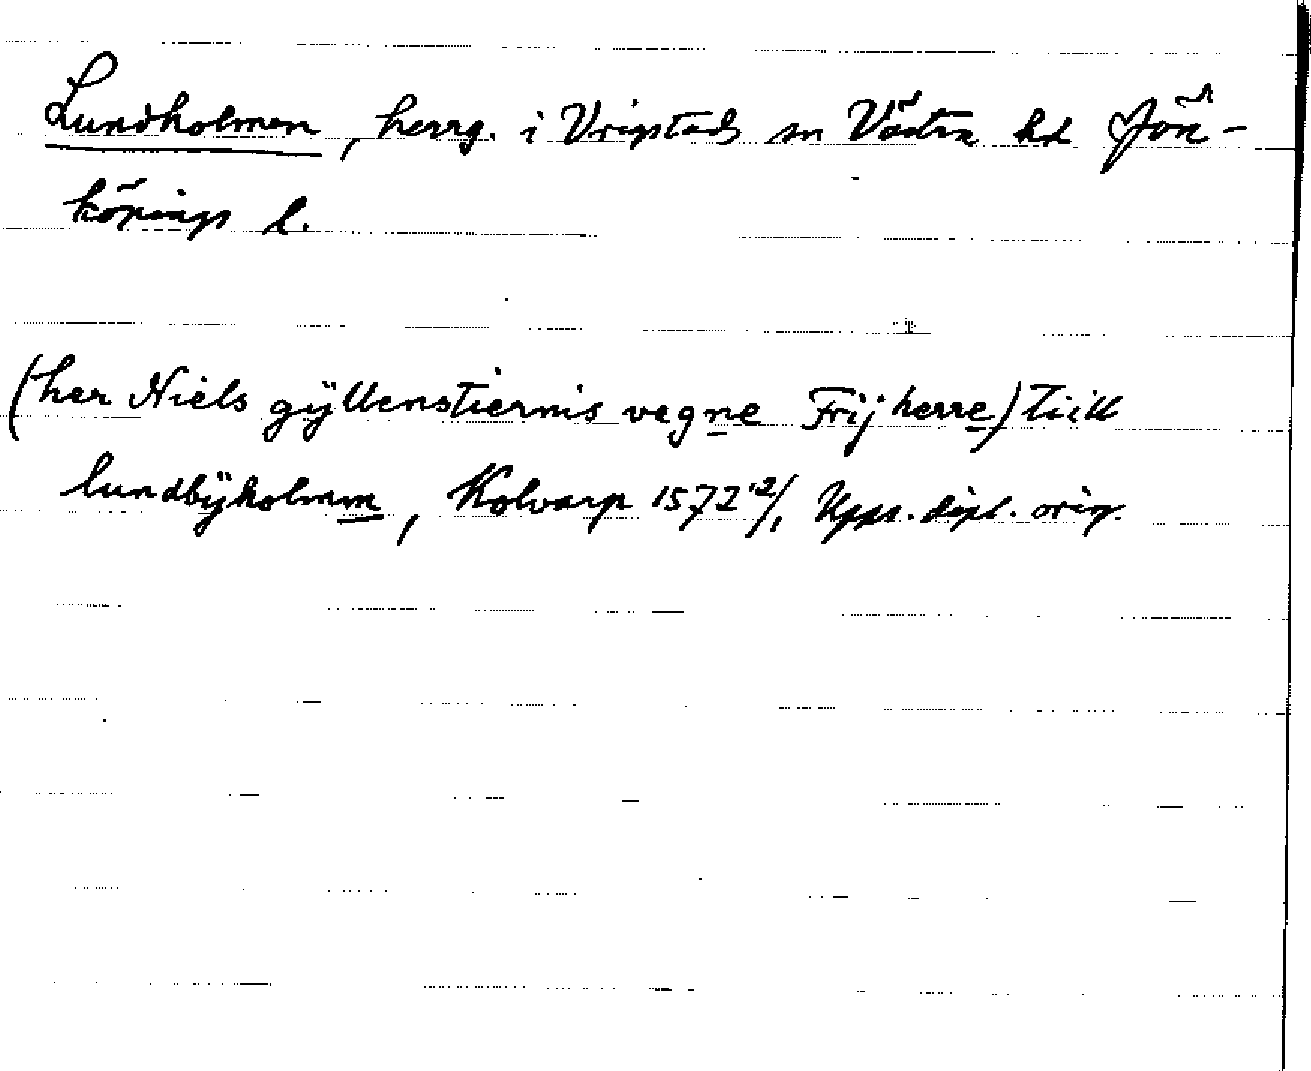 Lundholmen, herrg. i Vrigstads sn Västra hd Jön-
köpings l.
(her Niels gÿllenstiernis vegne Frijherre) tiill
lundbÿholmm, Kolvarp 1572 12/1 Upps. dipl. orig.